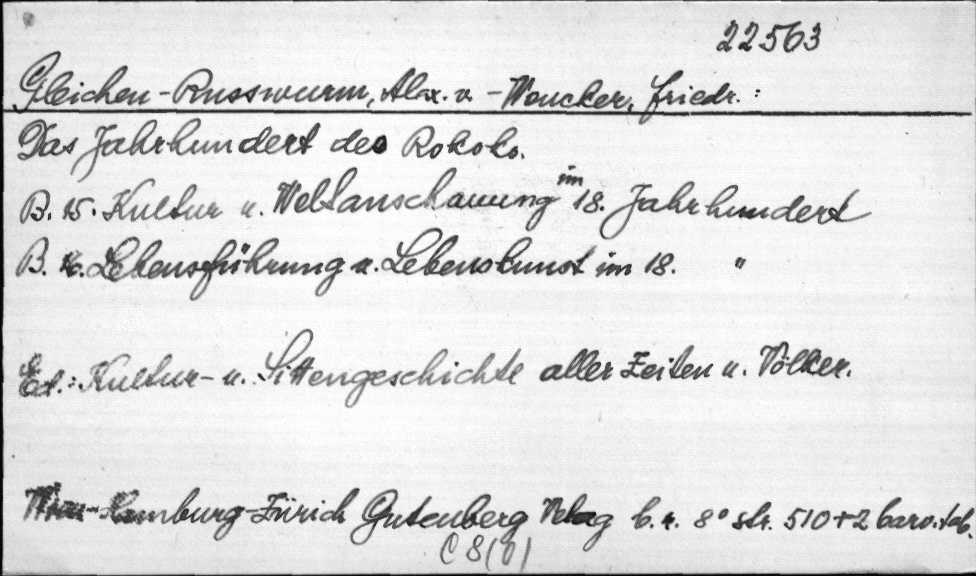 22563
Gleichen-Russwurm, Alex. v. - Wencker, Friedr.:
Das Jahrhundert des Rokoko.
B. 15. Kultur u. Weltanschauung im 18. Jahrhundert
B. 16. Lebensführung u. Lebenskunst im 18. "
Ed.: Kultur- u. Sittengeschichte aller Zeiten u. Völker.
Wien-Hamburg-Zürich Gutenberg Verlag b. r. 8° str. 510+2 barv. tab.
C 8(0)